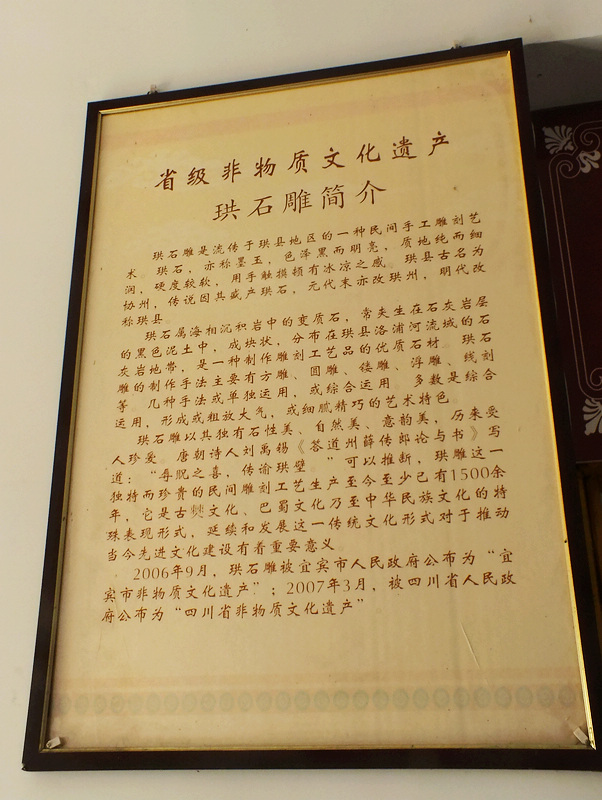 省级非物质文化遗产
珙石雕简介
珙石雕是流传于珙县地区的一种民间手工雕刻艺
术。珙石，亦称墨玉，色泽黑而明亮，质地纯而细
润，硬度较软，用手触摸顿有冰凉之感。珙县古名为
协州，传说因其盛产珙石，元代末亦改珙州，明代改
称珙县。
珙石属海相沉积岩中的变质石，常夹生在石灰岩层
的黑色泥土中，成块状，分布在珙县洛浦河流域的石
灰岩地带，是一种制作雕刻工艺品的优质石材。珙石
雕的制作手法主要有方雕、圆雕、镂雕、浮雕、线刻
等。几种手法或单独运用，或综合运用 多数是综合
运用，形成或粗放大气，或细腻精巧的艺术特色。
珙石雕以其独有石性美、自然美、意韵美，历来受
人珍爱。唐朝诗人刘禹锡《答道州薛侍郎论与书》写
道：“辱贶之喜，传谕珙璧 ”可以推断，珙雕这一
独特而珍贵的民间雕刻工艺生产至今至少已有1500余
年，它是古僰文化、巴蜀文化乃至中华民族文化的特
殊表现形式，延续和发展这一传统文化形式对于推动
当今先进文化建设有着重要意义
2006年9月，珙石雕被宜宾市人民政府公布为“宜
宾市非物质文化遗产”；2007年3月，被四川省人民政
府公布为“四川省非物质文化遗产”